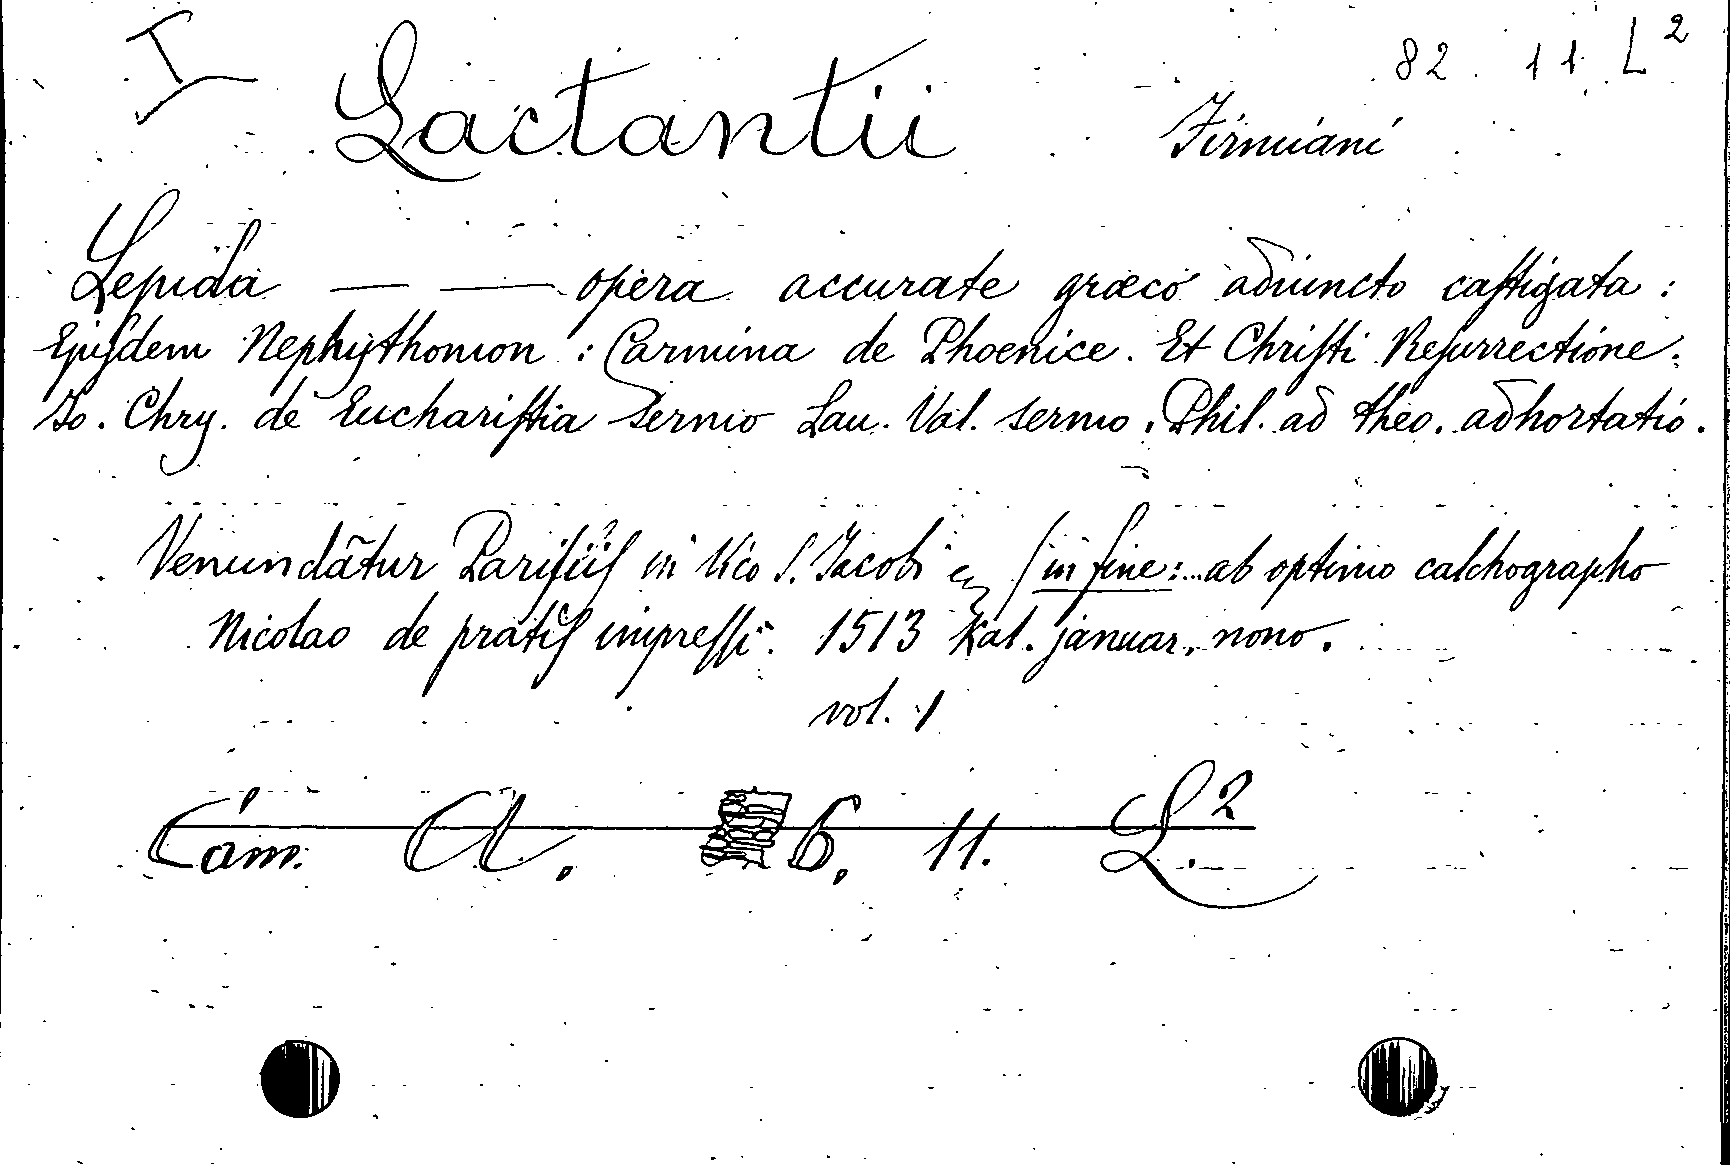 I 82. 11. L²
Lactantii Firmiani
Lepida — — opera accurate græco adiuncto caſtigata:
Ejuſdem Nephythomon: Carmina de Phoenice. Et Chriſti Reſurrectione.
Io. Chry. de Euchariſtia sermo Lau. Val. sermo. Phil. ad theo. adhortatio.
Venundātur Pariſiiſ in Vico S. Jacobi (in fine: ... ab optimo calchographo
Nicolao de pratiſ impreſſi. 1513 Kal. januar. nono.
vol. 1
Cam. A. 6. 11. L.²